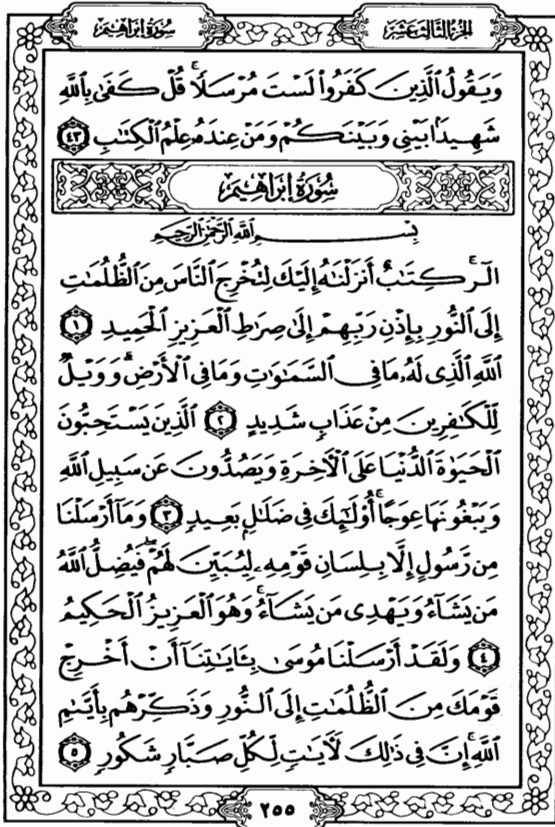 سُورَةُ إِبْرَاهِيم الجُزْءُ الثَّالِثَ عَشَرَ
وَيَقُولُ الَّذِينَ كَفَرُوا۟ لَسْتَ مُرْسَلًا ۚ قُلْ كَفَىٰ بِاللَّهِ
شَهِيدًۢا بَيْنِى وَبَيْنَكُمْ وَمَنْ عِندَهُۥ عِلْمُ الْكِتَٰبِ ٤٣
سُورَةُ إِبْرَاهِيم
بِسْمِ اللَّهِ الرَّحْمَٰنِ الرَّحِيمِ
الٓر ۚ كِتَٰبٌ أَنزَلْنَٰهُ إِلَيْكَ لِتُخْرِجَ النَّاسَ مِنَ الظُّلُمَٰتِ
إِلَى النُّورِ بِإِذْنِ رَبِّهِمْ إِلَىٰ صِرَٰطِ الْعَزِيزِ الْحَمِيدِ ١
اللَّهِ الَّذِى لَهُۥ مَا فِى السَّمَٰوَٰتِ وَمَا فِى الْأَرْضِ ۗ وَوَيْلٌ
لِّلْكَٰفِرِينَ مِنْ عَذَابٍ شَدِيدٍ ٢ الَّذِينَ يَسْتَحِبُّونَ
الْحَيَوٰةَ الدُّنْيَا عَلَى الْءَاخِرَةِ وَيَصُدُّونَ عَن سَبِيلِ اللَّهِ
وَيَبْغُونَهَا عِوَجًا ۚ أُو۟لَٰٓئِكَ فِى ضَلَٰلٍۭ بَعِيدٍ ٣ وَمَآ أَرْسَلْنَا
مِن رَّسُولٍ إِلَّا بِلِسَانِ قَوْمِهِۦ لِيُبَيِّنَ لَهُمْ ۖ فَيُضِلُّ اللَّهُ
مَن يَشَآءُ وَيَهْدِى مَن يَشَآءُ ۚ وَهُوَ الْعَزِيزُ الْحَكِيمُ
٤ وَلَقَدْ أَرْسَلْنَا مُوسَىٰ بِـَٔايَٰتِنَآ أَنْ أَخْرِجْ
قَوْمَكَ مِنَ الظُّلُمَٰتِ إِلَى النُّورِ وَذَكِّرْهُم بِأَيَّىٰمِ
اللَّهِ ۚ إِنَّ فِى ذَٰلِكَ لَءَايَٰتٍ لِّكُلِّ صَبَّارٍ شَكُورٍ ٥
٢٥٥